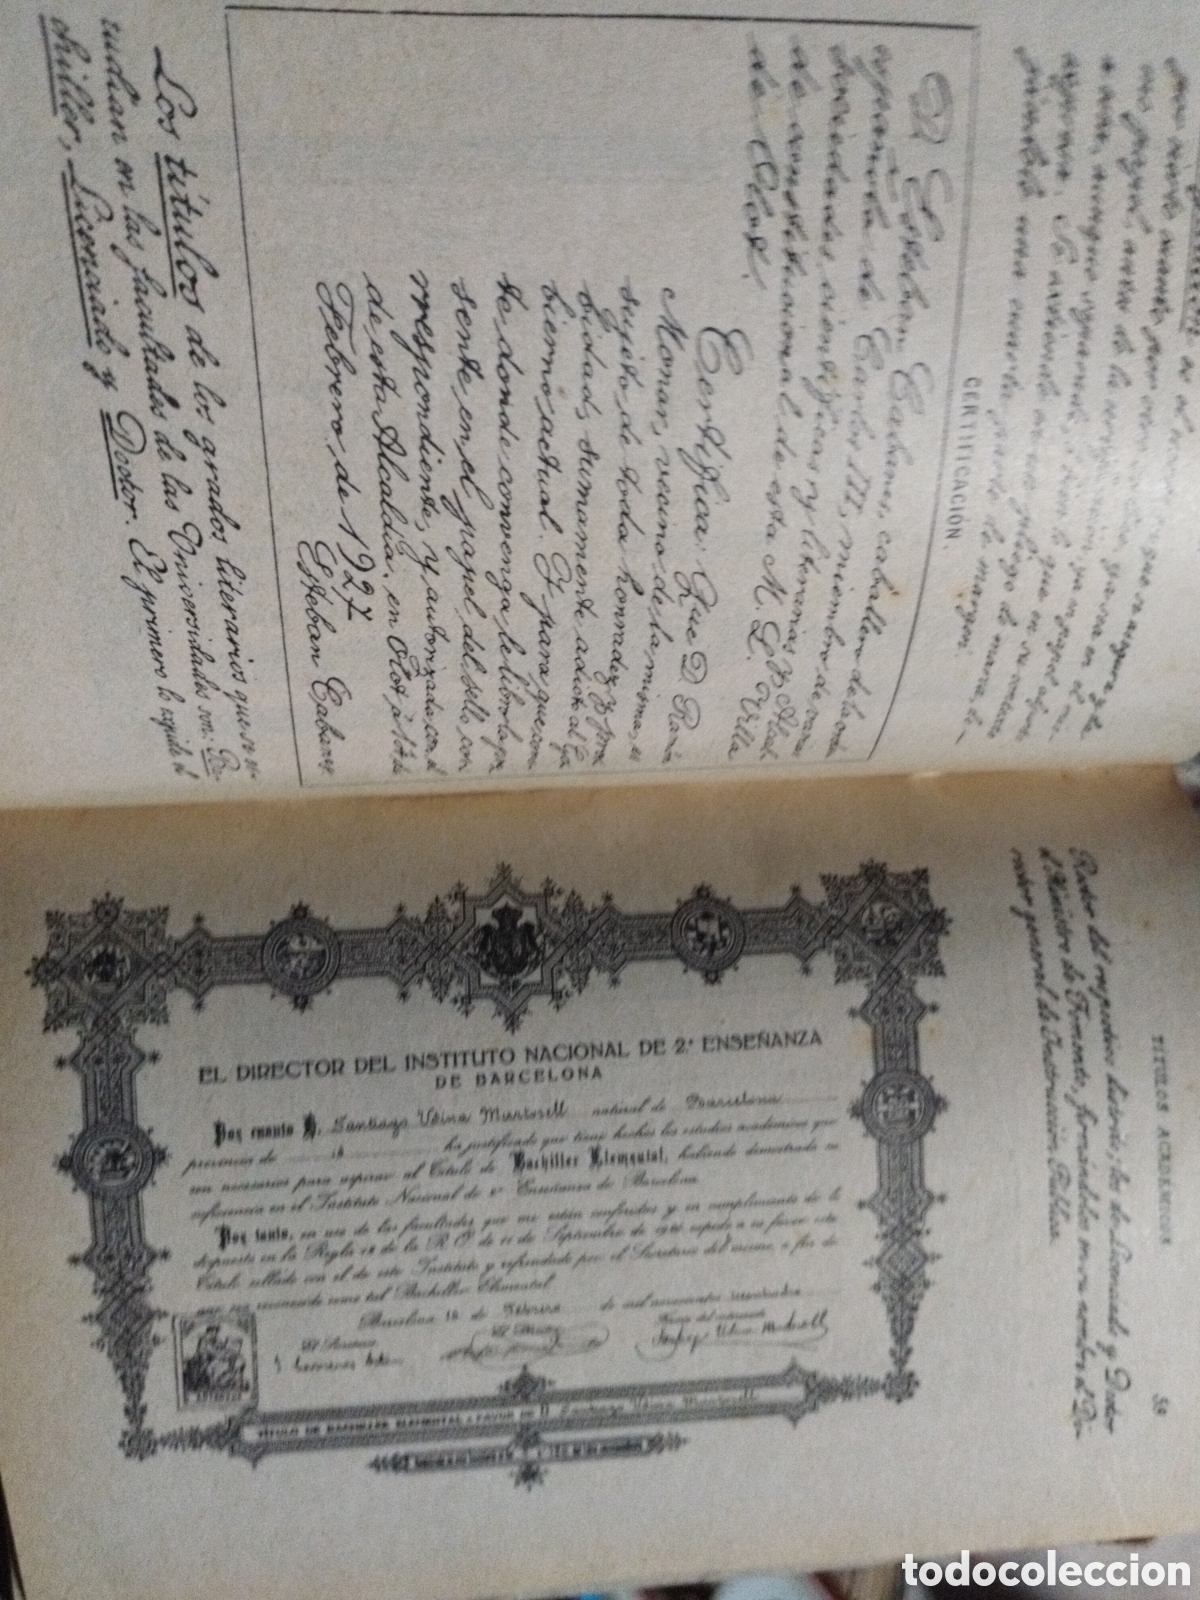 CERTIFICACIÓN.
Dn Esteban Cabanes, caballero de la orden
española de Carlos III, miembro de varias
sociedades científicas y literarias y Alcal-
de constitucional de esta M. L. Villa
de Olot.
Certifica: Que D. Ramón
Monar, vecino de la misma, es
sujeto de toda honradez y pro-
bidad, sumamente adicto al Go-
bierno actual. Y para que cons-
te donde convenga le libro la pre-
sente en el papel del sello co-
rrespondiente, y autorizada con el
de esta Alcaldía, en Olot, á 17 de
Febrero de 1927
Esteban Cabanes
Los títulos de los grados literarios que se es-
tudian en las facultades de las Universidades son: Ba-
chiller, Licenciado y Doctor. El primero lo expide el
TITULOS ACADEMICOS 59
Rector del respectivo distrito; los de Licenciado y Doctor
el Ministro de Fomento, firmándolos en su nombre el Di-
rector general de Instrucción Pública.
EL DIRECTOR DEL INSTITUTO NACIONAL DE 2ª ENSEÑANZA
DE BARCELONA
Por cuanto D. Santiago Udina Martorell natural de Barcelona
provincia de id ha justificado que tiene hechos los estudios académicos que
son necesarios para aspirar al Título de Bachiller Elemental, habiendo demostrado su
suficiencia en el Instituto Nacional de 2ª Enseñanza de Barcelona.
Por tanto, en uso de las facultades que me están conferidas y en cumplimiento de lo
dispuesto en la Regla 18 de la R. O. de 11 de Septiembre de 1926 expido a su favor este
Título sellado con el de este Instituto y refrendado por el Secretario del mismo, a fin de
que sea reconocido como tal Bachiller Elemental.
Barcelona 18 de Febrero de mil novecientos
El Secretario El Director Firma del interesado
Santiago Udina Martorell
TÍTULO DE BACHILLER ELEMENTAL A FAVOR DE D. Santiago Udina Martorell
todocoleccion